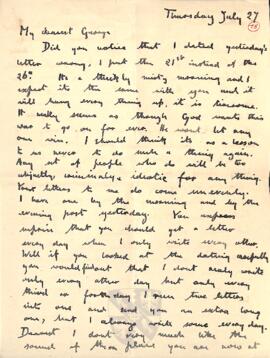 Thursday July 27
My dearest George
Did you notice that I dated yesterday's
letter wrong, I put the 21st instead of the
26th. It's a thickly misty morning and I
expect it's the same with you and it
will hang every thing up, it is tiresome.
It really seems as though God meant this
war to go on for ever. He wont let any
one win. I should think it's as a lesson
to us never to do such a thing again.
Any set of people who do will be too
abjectly criminally & idiotic for any thing.
Your letters to me do come unevenly.
I have one by the morning and by the
evening post yesterday. You impress
upon me that you should get a letter
every day when I only write every other.
Well if you looked at the dating carefully
you would find out that I dont really write
only every other day but only every
third or fourth day I run two letters
into one and send you an extra long
one, but I always write some every day.
Dearest I dont very much like the
sound of these plains you are now at